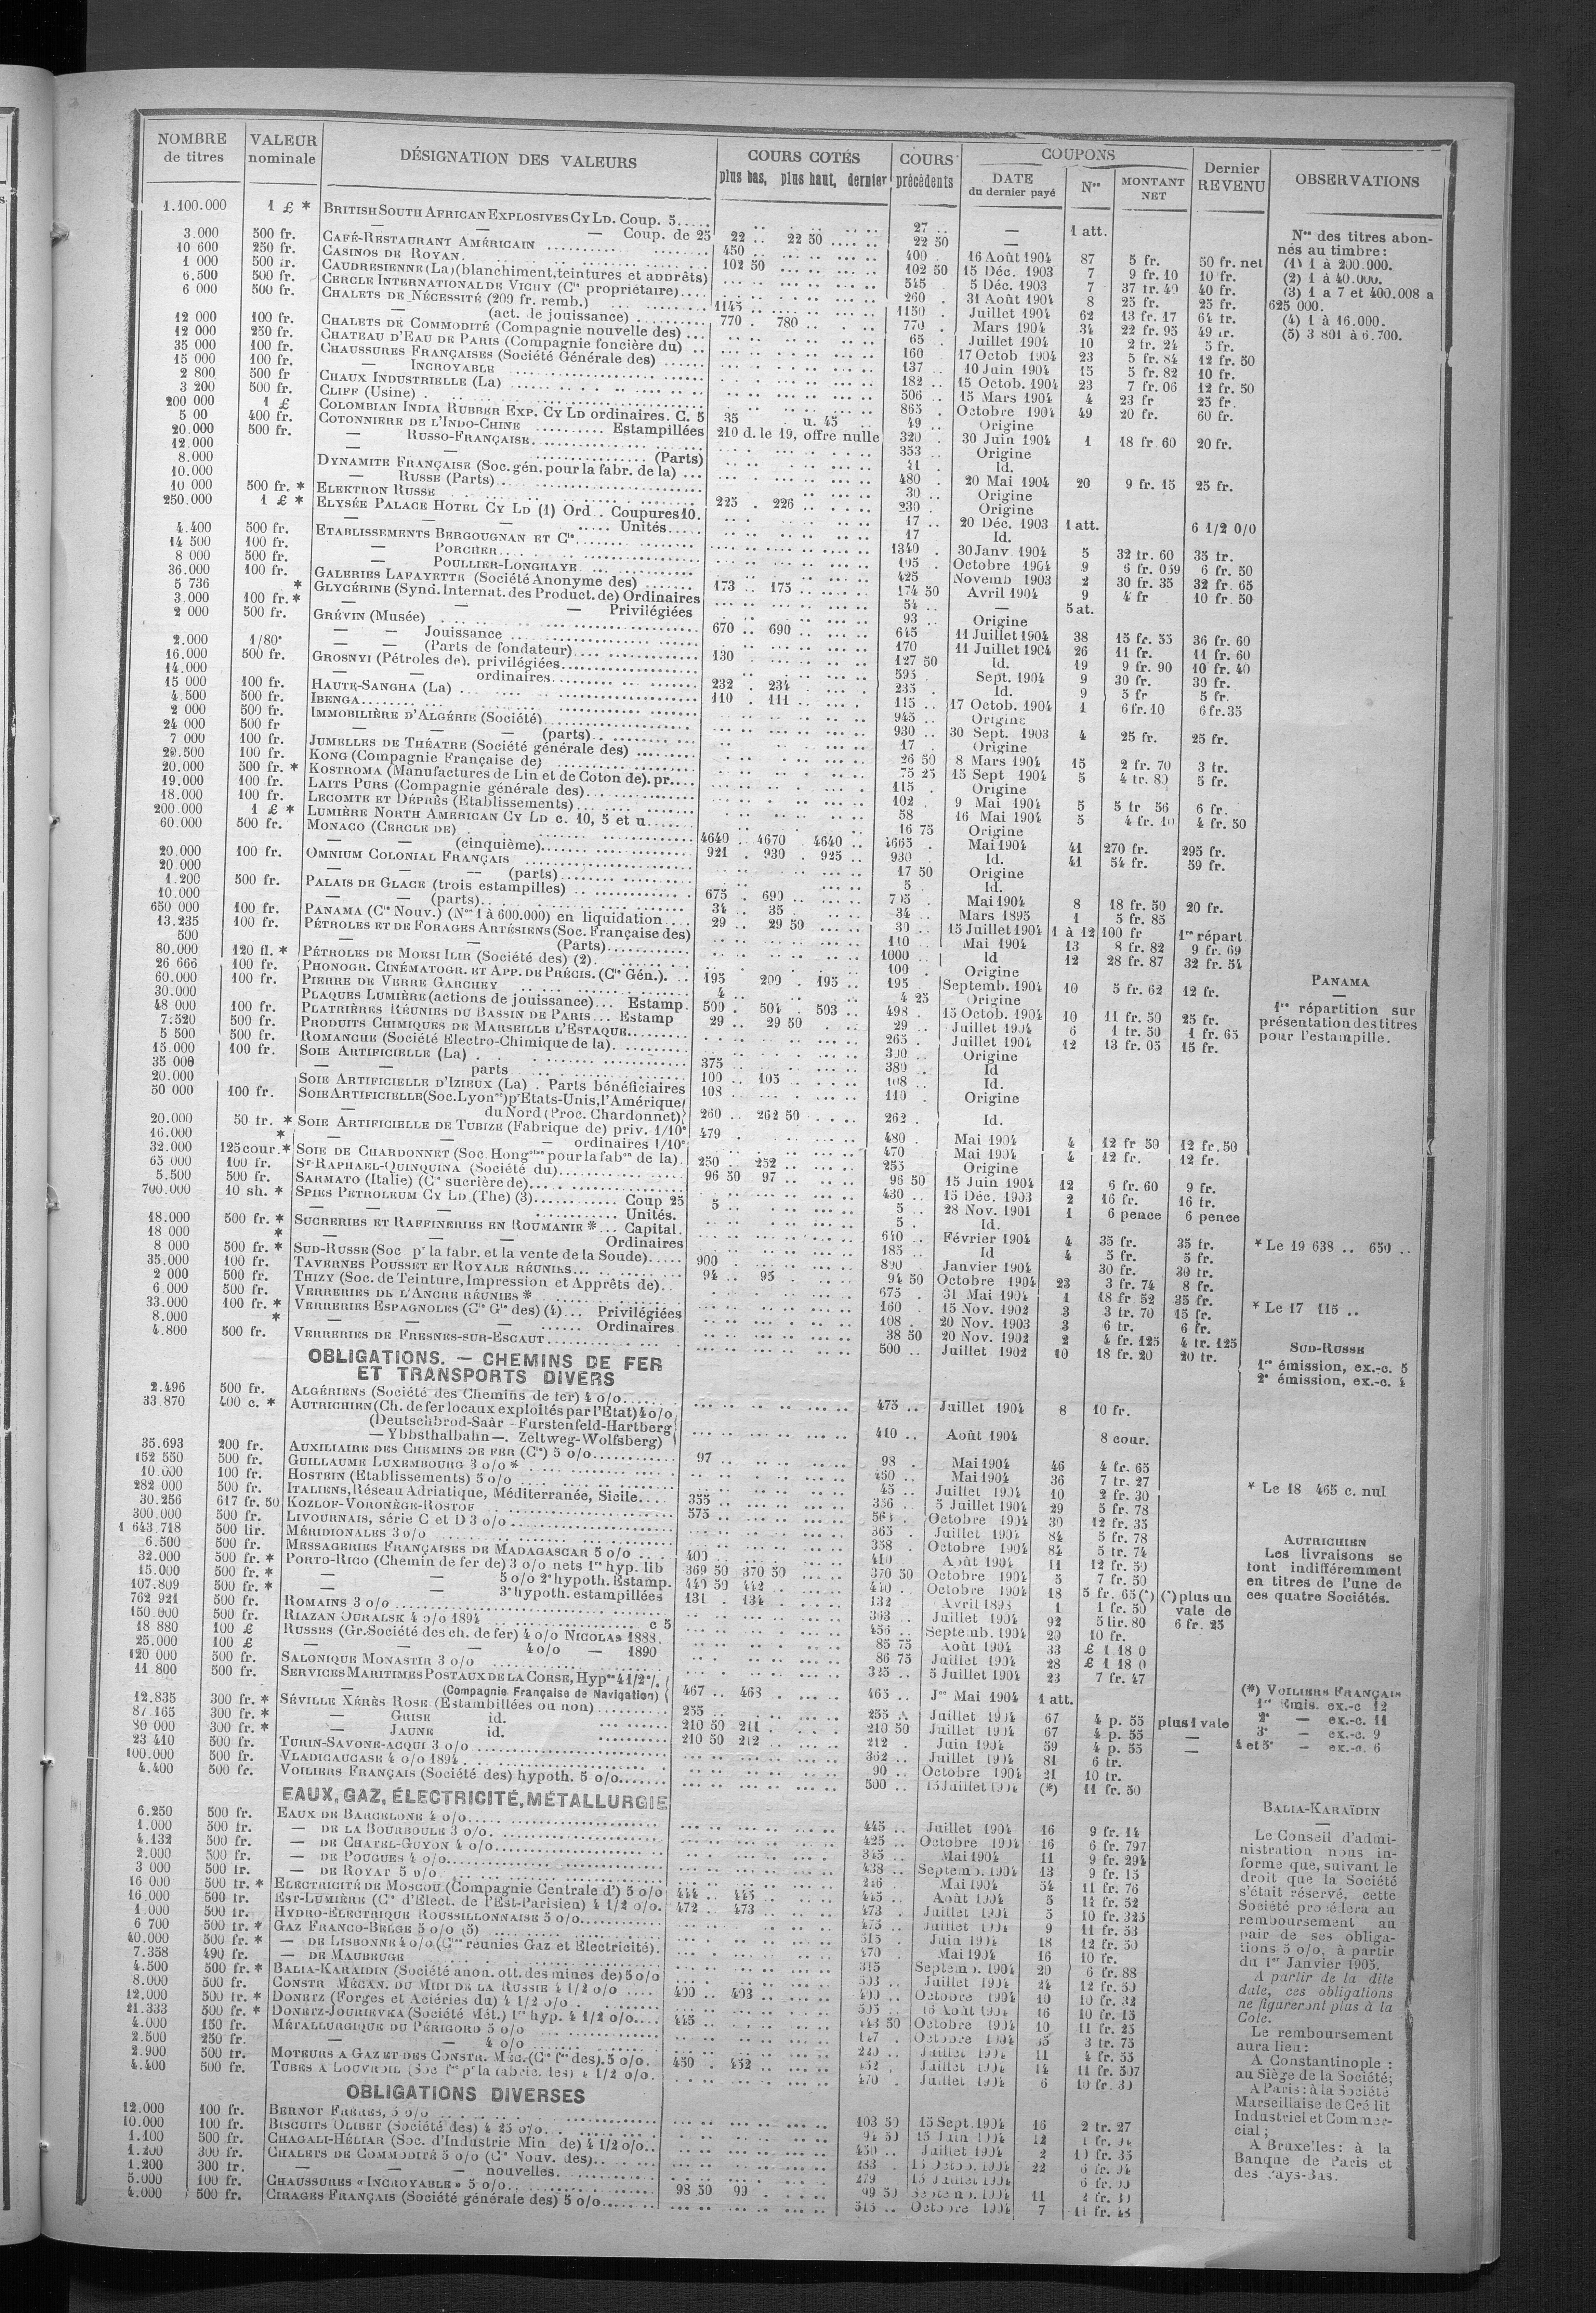 NOMBRE de titres | VALEUR nominale | DÉSIGNATION DES VALEURS | COURS COTÉS plus bas, plus haut, dernier | COURS précédents | COUPONS DATE du dernier payé | Nos | MONTANT NET | Dernier REVENU | OBSERVATIONS
1.100.000 1 £ * BRITISH SOUTH AFRICAN EXPLOSIVES CY LD. Coup. 5..... 27 .. — 1 att.
— — — Coup. de 25 22 .. 22 50 22 50 —
3.000 500 fr. CAFÉ-RESTAURANT AMÉRICAIN 450 .. 400 . 16 Août 1904 87 5 fr. 50 fr. net
10 600 250 fr. CASINOS DE ROYAN. 102 50 102 50 15 Déc. 1903 7 9 fr. 10 10 fr.
1 000 500 fr. CAUDRESIENNE (La) (blanchiment, teintures et apprêts) 545 . 5 Déc. 1903 7 37 fr. 40 40 fr.
6.500 500 fr. CERCLE INTERNATIONAL DE VICHY (Cie propriétaire).... 260 . 31 Août 1904 8 25 fr. 25 fr.
6 000 500 fr. CHALETS DE NÉCESSITÉ (200 fr. remb.) 1145 .. 1150 . Juillet 1904 62 13 fr. 17 64 fr.
— (act. de jouissance) 770 . 780 .. 770 . Mars 1904 34 22 fr. 95 49 fr.
12 000 100 fr. CHALETS DE COMMODITÉ (Compagnie nouvelle des) ... 65 . Juillet 1904 10 2 fr. 24 5 fr.
12 000 250 fr. CHATEAU D'EAU DE PARIS (Compagnie foncière du) .. 160 17 Octob 1904 23 5 fr. 84 12 fr. 50
35 000 100 fr. CHAUSSURES FRANÇAISES (Société Générale des) 137 .. 10 Juin 1904 15 5 fr. 82 10 fr.
15 000 100 fr. — INCROYABLE 182 .. 15 Octob. 1904 23 7 fr. 06 12 fr. 50
2 800 500 fr CHAUX INDUSTRIELLE (La) 506 .. 15 Mars 1904 4 23 fr 25 fr.
3 200 500 fr. CLIFF (Usine) 865 . Octobre 1904 49 20 fr. 60 fr.
200 000 1 £ COLOMBIAN INDIA RUBBER EXP. CY LD ordinaires. C. 5 35 u. 45 49 .. Origine
5 00 400 fr. COTONNIERE DE L'INDO-CHINE Estampillées 210 d. le 19, offre nulle 320 . 30 Juin 1904 1 18 fr. 60 20 fr.
20.000 500 fr. — RUSSO-FRANÇAISE 353 .. Origine
12.000 — — (Parts) Id.
8.000 DYNAMITE FRANÇAISE (Soc. gén. pour la fabr. de la) ... 480 . 20 Mai 1904 20 9 fr. 15 25 fr.
10.000 — RUSSE (Parts) 30 .. Origine
10 000 500 fr. * ELEKTRON RUSSE 225 . 226 .. 230 . Origine
250.000 1 £ * ELYSÉE PALACE HOTEL CY LD (1) Ord . Coupures 10. 17 .. 20 Déc. 1903 1 att. 6 1/2 0/0
— — — Unités 17 Id.
4.400 500 fr. ETABLISSEMENTS BERGOUGNAN ET Cie 1340 . 30 Janv 1904 5 32 fr. 60 35 fr.
14 500 100 fr. — PORCHER 105 . Octobre 1904 9 6 fr. 059 6 fr. 50
8 000 500 fr. — POULLIER-LONGHAYE 425 Novemb 1903 2 30 fr. 35 32 fr. 65
36.000 100 fr. GALERIES LAFAYETTE (Société Anonyme des) 173 .. 175 174 50 Avril 1904 9 4 fr 10 fr. 50
5 736 * GLYCÉRINE (Synd. Internat. des Product. de) Ordinaires 54 .. — 5 at.
3.000 100 fr. * — — — Privilégiées 93 .. Origine
2 000 500 fr. GRÉVIN (Musée) 670 .. 690 .. 645 11 Juillet 1904 38 15 fr. 55 36 fr. 60
— — Jouissance 170 11 Juillet 1904 26 11 fr. 11 fr. 60
2.000 1/80e — — (Parts de fondateur) 130 127 50 Id. 19 9 fr. 90 10 fr. 40
16.000 500 fr. GROSNYI (Pétroles de). privilégiées 595 . Sept. 1904 9 30 fr. 30 fr.
14.000 — — ordinaires 232 . 234 . 235 . Id. 9 5 fr 5 fr.
15 000 100 fr. HAUTE-SANGHA (La) 110 . 111 .. 115 .. 17 Octob. 1904 1 6 fr. 10 6 fr. 35
4.500 500 fr. IBENGA 945 .. Origine
2 000 500 fr. IMMOBILIÈRE D'ALGÉRIE (Société) 930 .. 30 Sept. 1903 4 25 fr. 25 fr.
24 000 500 fr — — (parts) 17 . Origine
7 000 100 fr. JUMELLES DE THÉATRE (Société générale des) 26 50 8 Mars 1904 15 2 fr. 70 3 fr.
29.500 100 fr. KONG (Compagnie Française de) 75 25 15 Sept 1904 5 4 fr. 80 5 fr.
20.000 500 fr. * KOSTROMA (Manufactures de Lin et de Coton de). pr.... 115 . Origine
19.000 100 fr. LAITS PURS (Compagnie générale des) 102 . 9 Mai 1904 5 5 fr 56 6 fr.
18.000 100 fr. LECOMTE ET DÉPRÈS (Etablissements) 58 16 Mai 1904 5 4 fr. 10 4 fr. 50
200.000 1 £ * LUMIÈRE NORTH AMERICAN CY LD c. 10, 5 et u 16 75 Origine
60.000 500 fr. MONACO (CERCLE DE) 4640 .. 4670 . 4640 .. 4665 . Mai 1904 41 270 fr. 295 fr.
— — (cinquième) 921 . 930 . 925 .. 930 Id. 41 54 fr. 59 fr.
20.000 100 fr. OMNIUM COLONIAL FRANÇAIS 17 50 Origine
20.000 — — (parts) 5 . Id.
1.200 500 fr. PALAIS DE GLACE (trois estampilles) 675 . 690 705 . Mai 1904 8 18 fr. 50 20 fr.
10.000 — — (parts) 34 .. 35 34 .. Mars 1895 1 5 fr. 85
650 000 100 fr. PANAMA (Cie Nouv.) (Nos 1 à 600.000) en liquidation 29 .. 29 50 30 .. 15 Juillet 1904 1 à 12 100 fr 1re répart
13.235 100 fr. PÉTROLES ET DE FORAGES ARTÉSIENS (Soc. Française des) 110 . Mai 1904 13 8 fr. 82 9 fr. 69
500 — — (Parts) 1000 .. Id 12 28 fr. 87 32 fr. 54
80.000 120 fl. * PÉTROLES DE MOESI ILIR (Société des) (2) 100 . Origine
26 666 100 fr. PHONOGR. CINÉMATOGR. ET APP. DE PRÉCIS. (Cie Gén.). .. 195 200 . 195 .. 195 . Septemb. 1904 10 5 fr. 62 12 fr.
60.000 100 fr. PIERRE DE VERRE GARCHEY 4 .. 4 25 Origine
30.000 PLAQUES LUMIÈRE (actions de jouissance)... Estamp. 500 . 504 . 503 .. 498 . 15 Octob. 1904 10 11 fr. 50 25 fr.
48 000 100 fr. PLATRIÈRES RÉUNIES DU BASSIN DE PARIS ... Estamp 29 .. 29 50 29 .. Juillet 1904 6 1 fr. 50 1 fr. 65
7.520 500 fr. PRODUITS CHIMIQUES DE MARSEILLE L'ESTAQUE 265 . Juillet 1904 12 13 fr. 05 15 fr.
5 500 500 fr. ROMANCHE (Société Electro-Chimique de la) Origine
15.000 100 fr. SOIE ARTIFICIELLE (La) 375 .. 380 .. Id
35 000 — — parts 100 .. 105 108 .. Id.
20.000 SOIE ARTIFICIELLE D'IZIEUX (La) . Parts bénéficiaires 108 .. 110 . Origine
50 000 100 fr. SOIE ARTIFICIELLE (Soc. Lyonse) pr Etats-Unis, l'Amérique
— du Nord (Proc. Chardonnet) 260 .. 262 50 262 . Id.
20.000 50 fr. * SOIE ARTIFICIELLE DE TUBIZE (Fabrique de) priv. 1/10e 479 . 480 . Mai 1904 4 12 fr 50 12 fr. 50
16.000 * — — — ordinaires 1/10e 470 Mai 1904 4 12 fr. 12 fr.
32.000 125 cour. * SOIE DE CHARDONNET (Soc. Hongoise pour la fabon de la). 250 .. 252 .. 255 Origine
65 000 100 fr. ST-RAPHAEL-QUINQUINA (Société du) 96 50 97 .. 96 50 15 Juin 1904 12 6 fr. 60 9 fr.
5.500 500 fr. SARMATO (Italie) (Cie sucrière de) 430 .. 15 Déc. 1903 2 16 fr. 16 fr.
700.000 10 sh. * SPIES PETROLEUM CY LD (The) (3) Coup 25 5 .. 5 .. 28 Nov. 1901 1 6 pence 6 pence
— — — Unités. 5 . Id.
18.000 500 fr. * SUCRERIES ET RAFFINERIES EN ROUMANIE * ... Capital. 640 .. Février 1904 4 35 fr. 35 fr.
18 000 * — — — Ordinaires 185 .. Id 4 5 fr. 5 fr.
8 000 500 fr. * SUD-RUSSE (Soc pr la fabr. et la vente de la Soude) 900 890 . Janvier 1904 30 fr. 30 fr.
35.000 100 fr. TAVERNES POUSSET ET ROYALE RÉUNIES 94 .. 95 94 50 Octobre 1904 23 3 fr. 74 8 fr.
2 000 500 fr. THIZY (Soc. de Teinture, Impression et Apprêts de) 675 . 31 Mai 1904 1 18 fr 52 35 fr.
6.000 500 fr. VERRERIES DE L'ANCRE RÉUNIES * 160 . 15 Nov. 1902 3 3 fr. 70 15 fr.
33.000 100 fr. * VERRERIES ESPAGNOLES (Cie Gle des) (4) ... Privilégiées 108 . 20 Nov. 1903 3 6 fr. 6 fr.
8.000 * — — Ordinaires 38 50 20 Nov. 1902 2 4 fr. 125 4 fr. 125
4.800 500 fr. VERRERIES DE FRESNES-SUR-ESCAUT 500 .. Juillet 1902 10 18 fr. 20 20 fr.
OBLIGATIONS. — CHEMINS DE FER
ET TRANSPORTS DIVERS
2.496 500 fr. ALGÉRIENS (Société des Chemins de fer) 4 o/o 475 .. Juillet 1904 8 10 fr.
33 870 400 c. * AUTRICHIEN (Ch. de fer locaux exploités par l'Etat) 4 o/o
(Deutschbrod-Saàr — Furstenfeld-Hartberg
— Ybbsthalbahn —. Zeltweg-Wolfsberg) 410 .. Août 1904 8 cour.
35.693 200 fr. AUXILIAIRE DES CHEMINS DE FER (Cie) 5 o/o 97 98 . Mai 1904 46 4 fr. 65
152 550 500 fr. GUILLAUME LUXEMBOURG 3 o/o * 450 .. Mai 1904 36 7 fr. 27
10.000 100 fr. HOSTEIN (Etablissements) 5 o/o 45 .. Juillet 1904 10 2 fr. 30
282 000 500 fr. ITALIENS, Réseau Adriatique, Méditerranée, Sicile 355 .. 356 . 5 Juillet 1904 29 5 fr. 78
30.256 617 fr. 50 KOZLOF-VORONÈGE-ROSTOF 575 .. Octobre 1904 30 12 fr. 35
300.000 500 fr. LIVOURNAIS, série C et D 3 o/o 365 . Juillet 1904 84 5 fr. 78
1 643.718 500 lir. MÉRIDIONALES 3 o/o 358 . Octobre 1904 84 5 fr. 74
6.500 500 fr. MESSAGERIES FRANÇAISES DE MADAGASCAR 5 o/o 400 .. 410 . Août 1904 11 12 fr. 50
32.000 500 fr. * PORTO-RICO (Chemin de fer de) 3 o/o nets 1re hyp. lib 369 50 370 50 370 50 Octobre 1904 5 7 fr. 50
15.000 500 fr. * — — 5 o/o 2e hypoth. Estamp. 440 50 442 .. 440 . Octobre 1904 18 5 fr. 65 (*) (*) plus un
107.809 500 fr. * — — 3e hypoth. estampillées 131 . 134 132 Avril 1898 1 1 fr. 50 vale de
762 921 500 fr. ROMAINS 3 o/o 363 .. Juillet 1904 92 5 lir. 80 6 fr. 25
150.000 500 fr. RIAZAN OURALSK 4 o/o 1894 c 5 456 .. Septemb. 1904 20 10 fr.
18 880 100 £ RUSSES (Gr. Société des ch. de fer) 4 o/o NICOLAS 1888. 85 75 Août 1904 33 £ 1 18 0
25.000 100 £ — — 4 o/o — 1890 86 75 Juillet 1904 28 £ 1 18 0
120 000 500 fr. SALONIQUE MONASTIR 3 o/o 325 .. 5 Juillet 1904 23 7 fr. 47
11.800 500 fr. SERVICES MARITIMES POSTAUX DE LA CORSE, Hypre 4 1/2 o/o
(Compagnie Française de Navigation) 467 .. 468 . 465 .. Jce Mai 1904 1 att.
12.835 300 fr. * SÉVILLE XÉRÈS ROSE (Estambillées ou non) 255 .. 255 . Juillet 1904 67 4 p. 55 plus 1 vale
87.165 300 fr. * — GRISE id. 210 50 211 . 210 50 Juillet 1904 67 4 p. 55 —
80 000 300 fr. * — JAUNE id. 210 50 212 .. 212 . Juin 1904 59 4 p. 55 —
23 410 500 fr. TURIN-SAVONE-ACQUI 3 o/o 362 .. Juillet 1904 81 6 fr.
100.000 500 fr. VLADICAUCASE 4 o/o 1894 90 .. Octobre 1904 21 10 fr.
4.400 500 fr. VOILIERS FRANÇAIS (Société des) hypoth. 5 o/o 500 .. 15 Juillet 1904 (*) 11 fr. 50
EAUX, GAZ, ÉLECTRICITÉ, MÉTALLURGIE
6.250 500 fr. EAUX DE BARCELONE 4 o/o 445 .. Juillet 1904 16 9 fr. 14
1.000 500 fr. — DE LA BOURBOULE 3 o/o. 425 .. Octobre 1904 16 6 fr. 797
4.132 500 fr. — DE CHATEL-GUYON 4 o/o 345 .. Mai 1904 11 9 fr. 294
2.000 500 fr. — DE POUGUES 4 o/o 438 .. Septemb. 1904 13 9 fr. 15
3 000 500 fr. — DE ROYAT 5 o/o Mai 1904 54 11 fr. 76
16 000 500 fr. * ELECTRICITÉ DE MOSCOU (Compagnie Centrale d') 5 o/o 444 .. 445 .. 445 .. Août 1904 5 12 fr. 52
16.000 500 fr. EST-LUMIÈRE (Cie d'Elect. de l'Est-Parisien) 4 1/2 o/o. 472 .. 473 473 . Juillet 1904 5 10 fr. 325
1.000 500 fr. HYDRO-ÉLECTRIQUE ROUSSILLONNAISE 5 o/o 475 .. Juillet 1904 9 11 fr. 53
6 700 500 fr. * GAZ FRANCO-BELGE 5 o/o (5) 515 . Juin 1904 18 12 fr. 50
40.000 500 fr. * — DE LISBONNE 4 o/o (Cies réunies Gaz et Electricité). 470 . Mai 1904 16 10 fr.
7.358 490 fr. — DE MAUBEUGE 315 Septemb. 1904 20 6 fr. 88
4.500 500 fr. * BALIA-KARAIDIN (Société anon. ott. des mines de) 5 o/o 503 .. Juillet 1904 24 12 fr. 50
8.000 500 fr. CONSTR MÉCAN. DU MIDI DE LA RUSSIE 4 1/2 o/o 400 .. 403 .. 400 .. Octobre 1904 10 10 fr. 32
12.000 500 fr. * DONETZ (Forges et Aciéries du) 4 1/2 o/o 505 .. 16 Août 1904 16 10 fr. 15
21.333 500 fr. * DONETZ-JOURIEVKA (Société Mét.) 1re hyp. 4 1/2 o/o 445 .. 443 50 Octobre 1904 10 11 fr. 25
4.000 150 fr. MÉTALLURGIQUE DU PÉRIGORD 5 o/o 147 . Octobre 1904 3 fr. 75
2.500 250 fr. — — 4 o/o Juillet 1904 11 4 fr. 55
2.900 500 fr. MOTEURS A GAZ ET DES CONSTR. MÉC. (Cie fse des) 5 o/o. 450 . 452 .. 452 . Juillet 1904 14 11 fr. 507
4.400 500 fr. TUBES A LOUVROIL (Soc fse pr la fabric. des) 4 1/2 o/o. 470 . Juillet 1904 6 10 fr. 30
OBLIGATIONS DIVERSES
12.000 100 fr. BERNOT FRÈRES, 5 o/o 103 50 15 Sept. 1904 16 2 fr. 27
10.000 100 fr. BISCUITS OLIBET (Société des) 4 25 o/o 15 Juin 1904 12
1.100 500 fr. CHAGALI-HÉLIAR (Soc. d'Industrie Min de) 4 1/2 o/o 450 .. Juillet 1904 2 10 fr. 35
1.200 300 fr. CHALETS DE COMMODITÉ 5 o/o (Cie Nouv. des) 15 Octob. 1904 22
1.200 300 fr. — — — nouvelles 279 15 Juillet 1904
5.000 100 fr. CHAUSSURES « INCROYABLE » 5 o/o 98 50 99 99 50 Septemb. 1904 11
4.000 500 fr. CIRAGES FRANÇAIS (Société générale des) 5 o/o 515 .. Octobre 1904 7 11 fr. 48
Nos des titres abon-
nés au timbre:
(1) 1 à 200.000.
(2) 1 à 40.000.
(3) 1 a 7 et 400.008 a
625 000.
(4) 1 à 16.000.
(5) 3 801 à 6.700.
PANAMA
—
1re répartition sur
présentation des titres
pour l'estampille.
* Le 19 638 .. 650 ..
* Le 17 115 ..
SUD-RUSSE
1re émission, ex.-c. 5
2e émission, ex.-c. 4
* Le 18 465 c. nul
AUTRICHIEN
Les livraisons se
font indifféremment
en titres de l'une de
ces quatre Sociétés.
(*) VOILIERS FRANÇAIS
1re Emis. ex.-c 12
2e — ex.-c. 11
3e — ex.-c. 9
4 et 5e — ex.-c. 6
BALIA-KARAÏDIN
—
Le Conseil d'admi-
nistration nous in-
forme que, suivant le
droit que la Société
s'était réservé, cette
Société procédera au
remboursement au
pair de ses obliga-
tions 5 o/o, à partir
du 1er Janvier 1905.
A partir de la dite
date, ces obligations
ne figureront plus à la
Cote.
Le remboursement
aura lieu:
A Constantinople :
au Siège de la Société;
A Paris: à la Société
Marseillaise de Crédit
Industriel et Commer-
cial ;
A Bruxelles: à la
Banque de Paris et
des Pays-Bas.